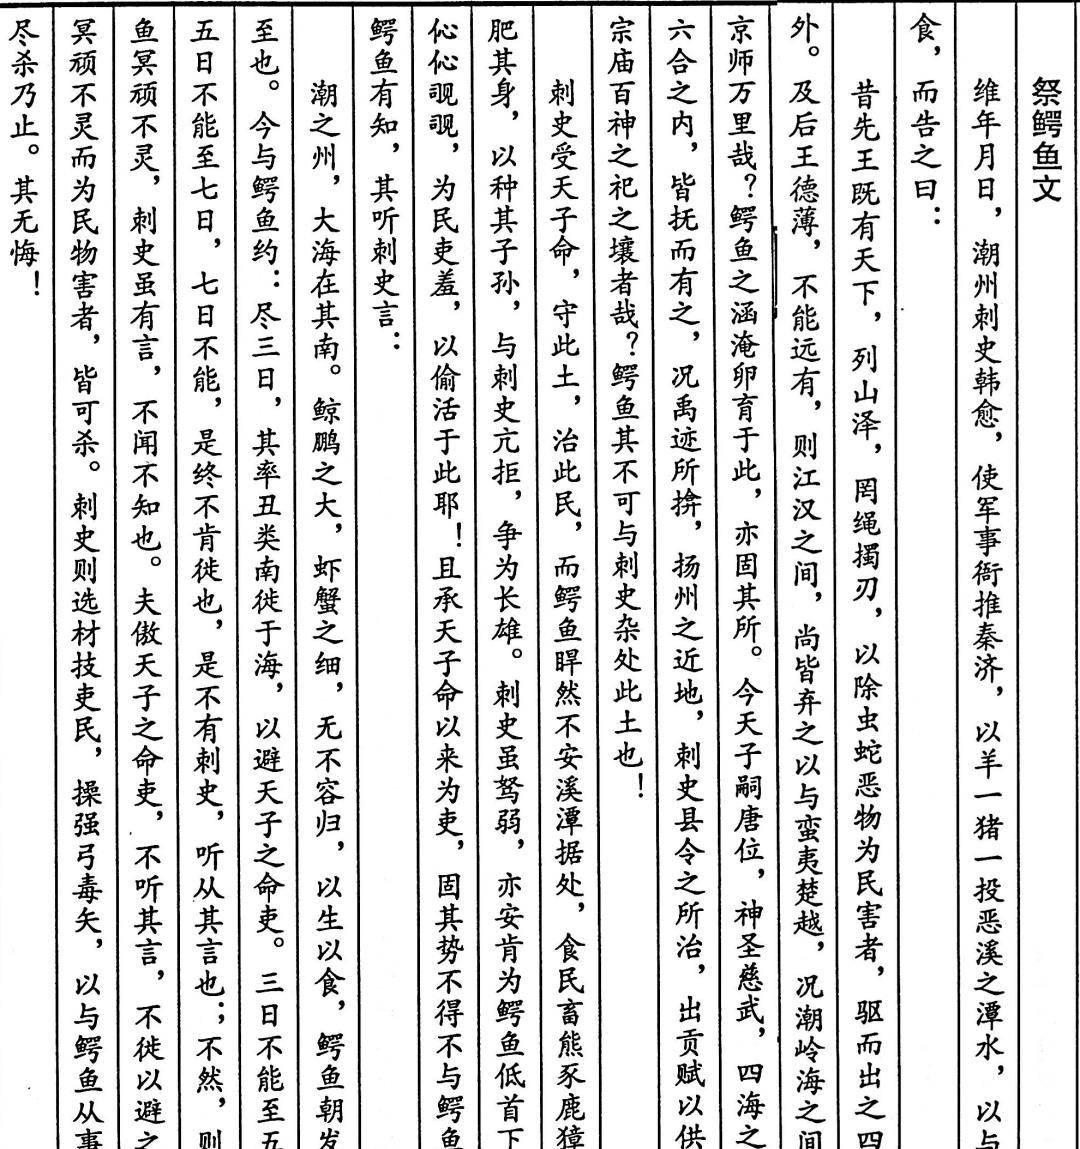 祭鳄鱼文
维年月日，潮州刺史韩愈，使军事衙推秦济，以羊一猪一投恶溪之潭水，以与
食，而告之曰：
昔先王既有天下，列山泽，罔绳擉刃，以除虫蛇恶物为民害者，驱而出之四
外。及后王德薄，不能远有，则江汉之间，尚皆弃之以与蛮夷楚越，况潮岭海之间
京师万里哉？鳄鱼之涵淹卵育于此，亦固其所。今天子嗣唐位，神圣慈武，四海之
六合之内，皆抚而有之，况禹迹所揜，扬州之近地，刺史县令之所治，出贡赋以供
宗庙百神之祀之壤者哉？鳄鱼其不可与刺史杂处此土也！
刺史受天子命，守此土，治此民，而鳄鱼睅然不安溪潭据处，食民畜熊豕鹿獐
肥其身，以种其子孙，与刺史亢拒，争为长雄。刺史虽驽弱，亦安肯为鳄鱼低首下
伈伈睍睍，为民吏羞，以偷活于此耶！且承天子命以来为吏，固其势不得不与鳄鱼
鳄鱼有知，其听刺史言：
潮之州，大海在其南。鲸鹏之大，虾蟹之细，无不容归，以生以食，鳄鱼朝发
至也。今与鳄鱼约：尽三日，其率丑类南徙于海，以避天子之命吏。三日不能至五
五日不能至七日，七日不能，是终不肯徙也，是不有刺史，听从其言也；不然，则
鱼冥顽不灵，刺史虽有言，不闻不知也。夫傲天子之命吏，不听其言，不徙以避之
冥顽不灵而为民物害者，皆可杀。刺史则选材技吏民，操强弓毒矢，以与鳄鱼从事
尽杀乃止。其无悔！